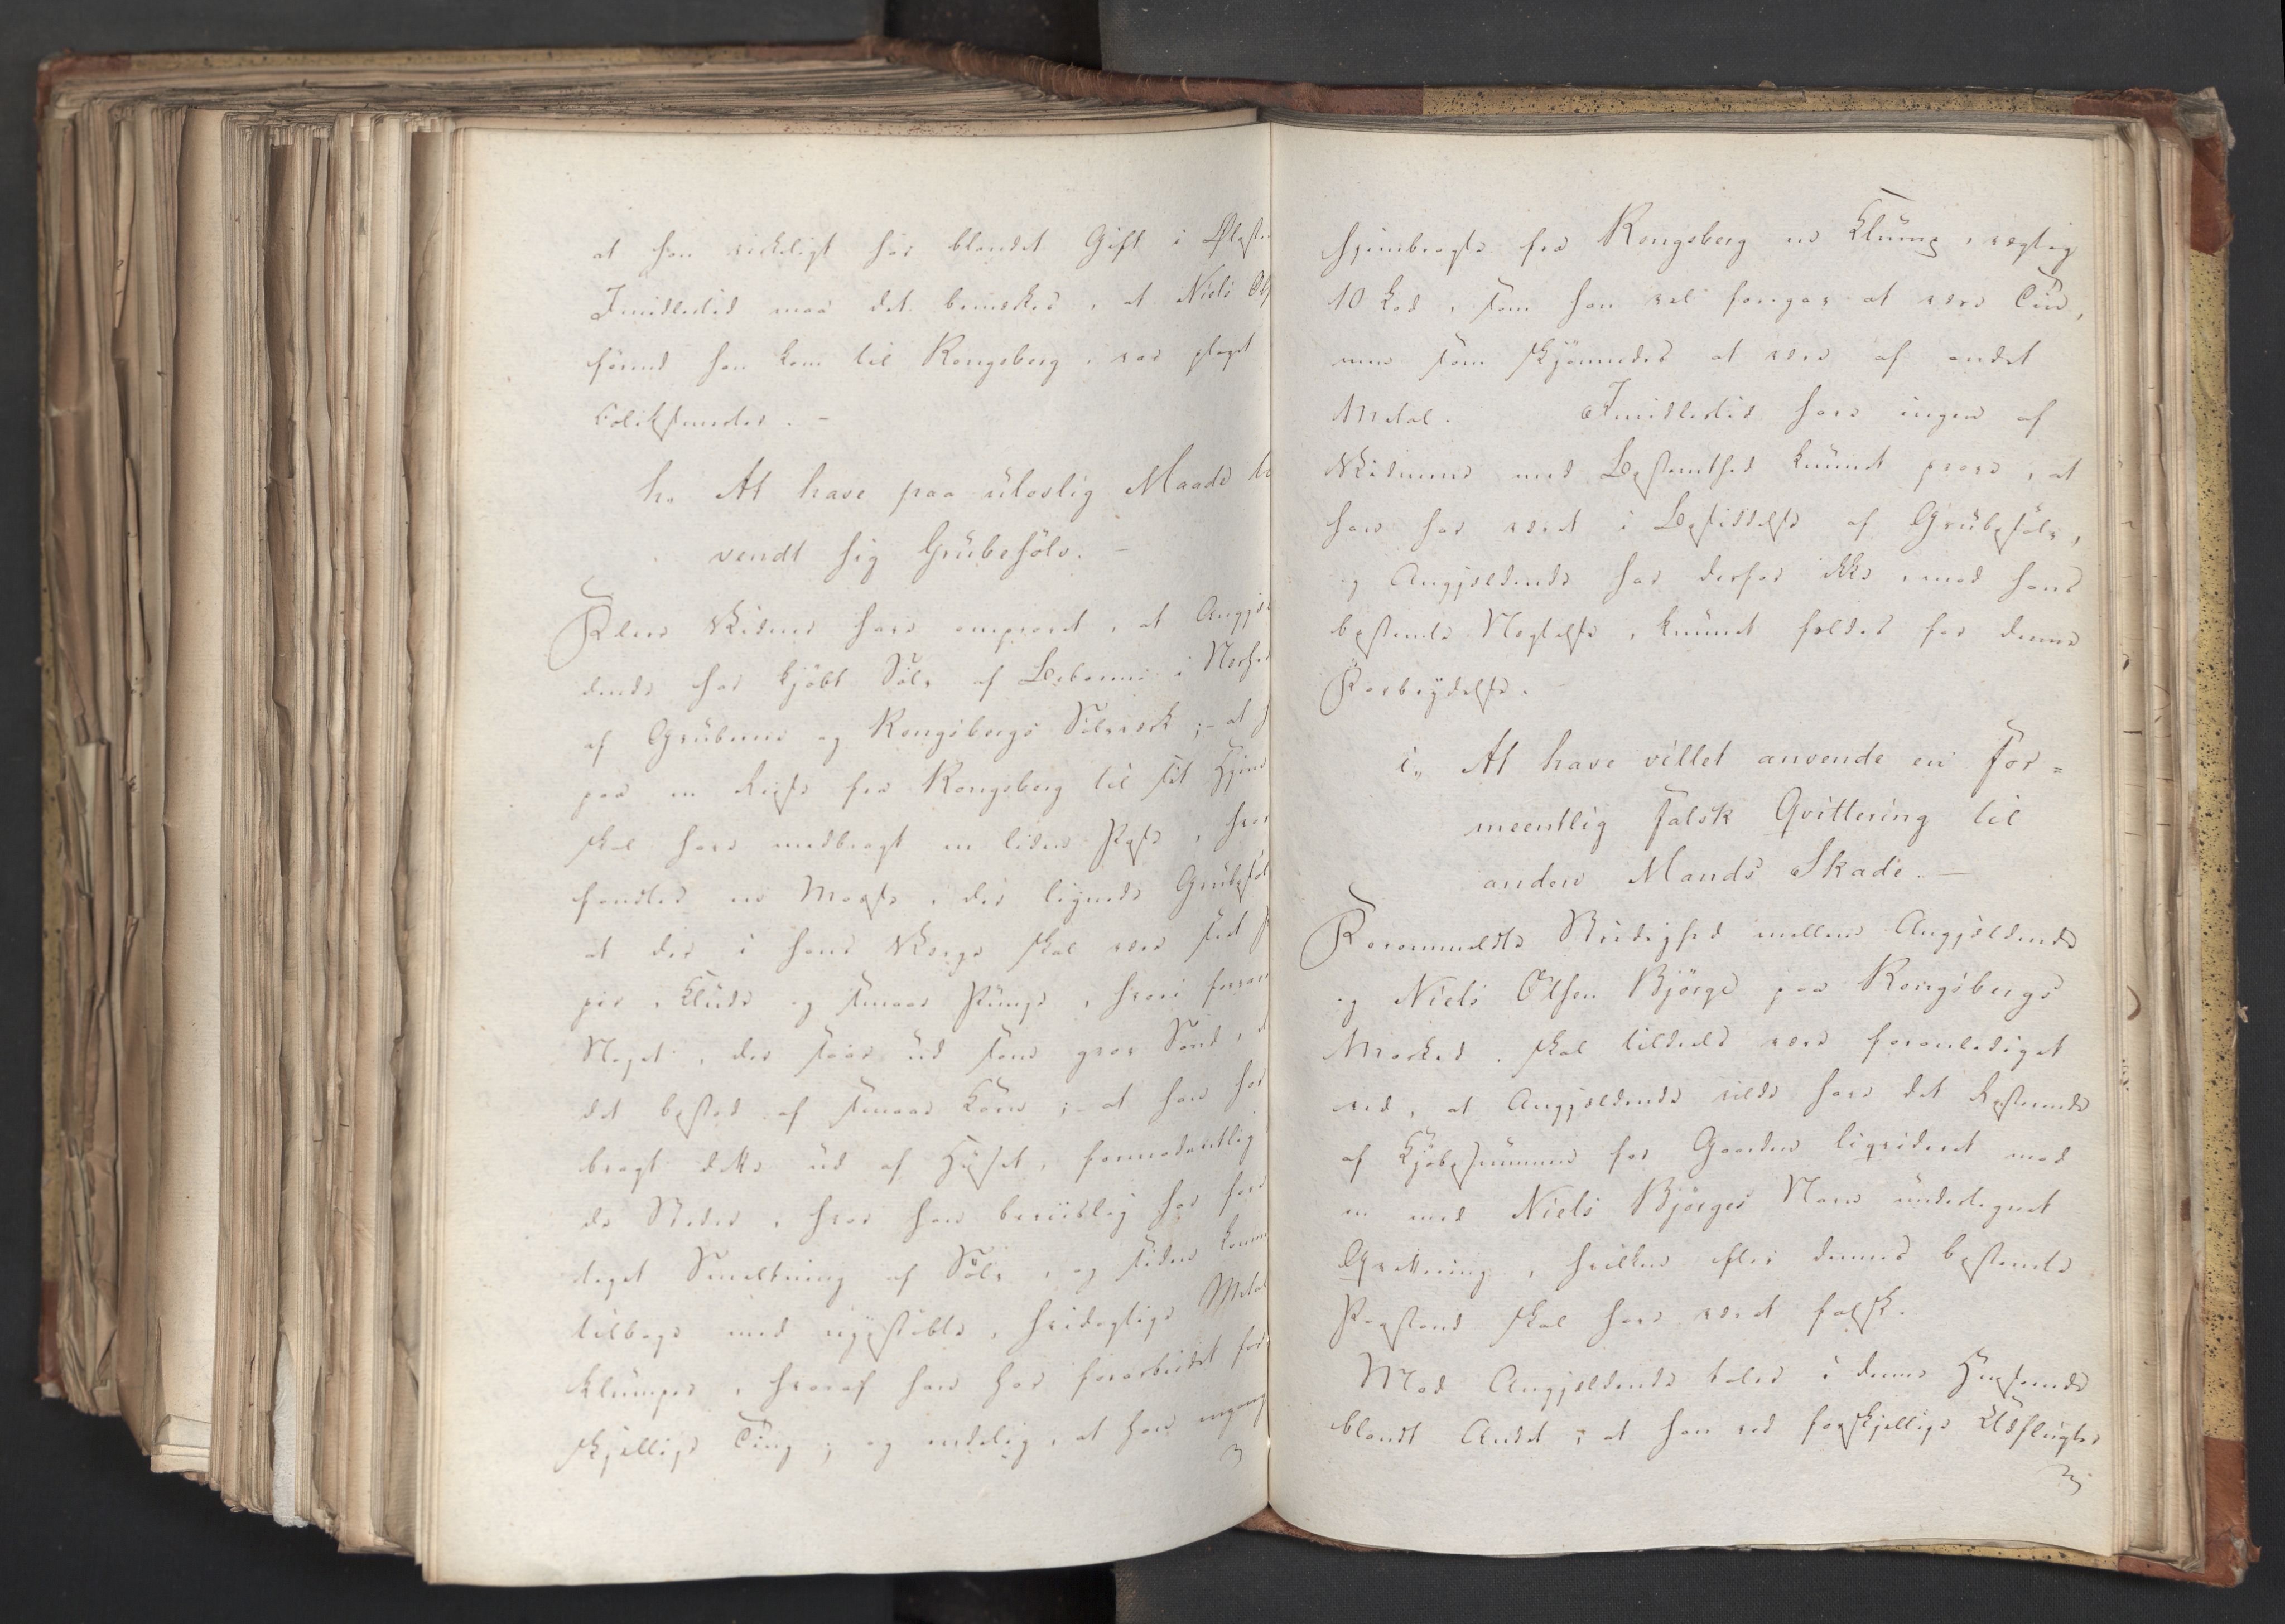 at han virkeligt har blandet Gift i Ølflas
Imidlertid maa det bemærkes, at Niels Ols
førend han kom til Kongsberg, var plaget
Coliksmerter. –
h. At have paa ulovlig Maade til
vendt sig Grubesølv. –
Flere Vidner have omprovet, at Angjæl
dende har kjøbt Sølv af Beboerne i Nærhe
af Gruberne og Kongsbergs Sølvverk ;- at h
paa en Reise fra Kongsberg til sit Hjem
skal have medbragt en liden Pose, hvor
fandtes en Masse, der lignede Grubesøl
at der i hans Værge skal være seet P
pir, Klude og smaae Punge, hvori forvar
Noget, der saae ud som grov Sand, d
det bestod af smaae Korn ;- at han har
bragt dette ud af Huset, formodentlig
de Steder, hvor han beviislig har fore
taget Smeltning af Sølv, og siden komm
tilbage med nystøbte, hvidagtige Metal
klumper, hvoraf han har forarbeidet for
skjellige Ting ; og endelig, at han engang
hjembragte fra Kongsberg en Klump, vægtig
10 Lod, som han vel foregav at være Tin,
men som skjønnedes at være af andet
Metal. Imidlertid have ingen af
Vidnerne med Bestemthed kunnet prove, at
han har været i Besiddelse af Grubesølv,
og Angjældende har derfor ikke, mod hans
bestemte Negtelse, kunnet fældes for denne
Forbrydelse.
i„ At have villet anvende en for=
meentlig falsk Qvittering til
anden Mands Skade. –
Forommeldte Stridighed mellem Angjældende
og Niels Olsen Bjørge paa Kongsbergs
Marked, skal tildeels være foranlediget
ved, at Angjældende vilde have det Resterende
af Kjøbesummen for Gaarden liqvideret med
en med Niels Bjørges Navn undertegnet
Qvittering, hvilken efter dennes bestemte
Paastand skal have været falsk.
Mod Angjældende taler i denne Henseende
blandt Andet ; at han ved forskjellige Udflugter